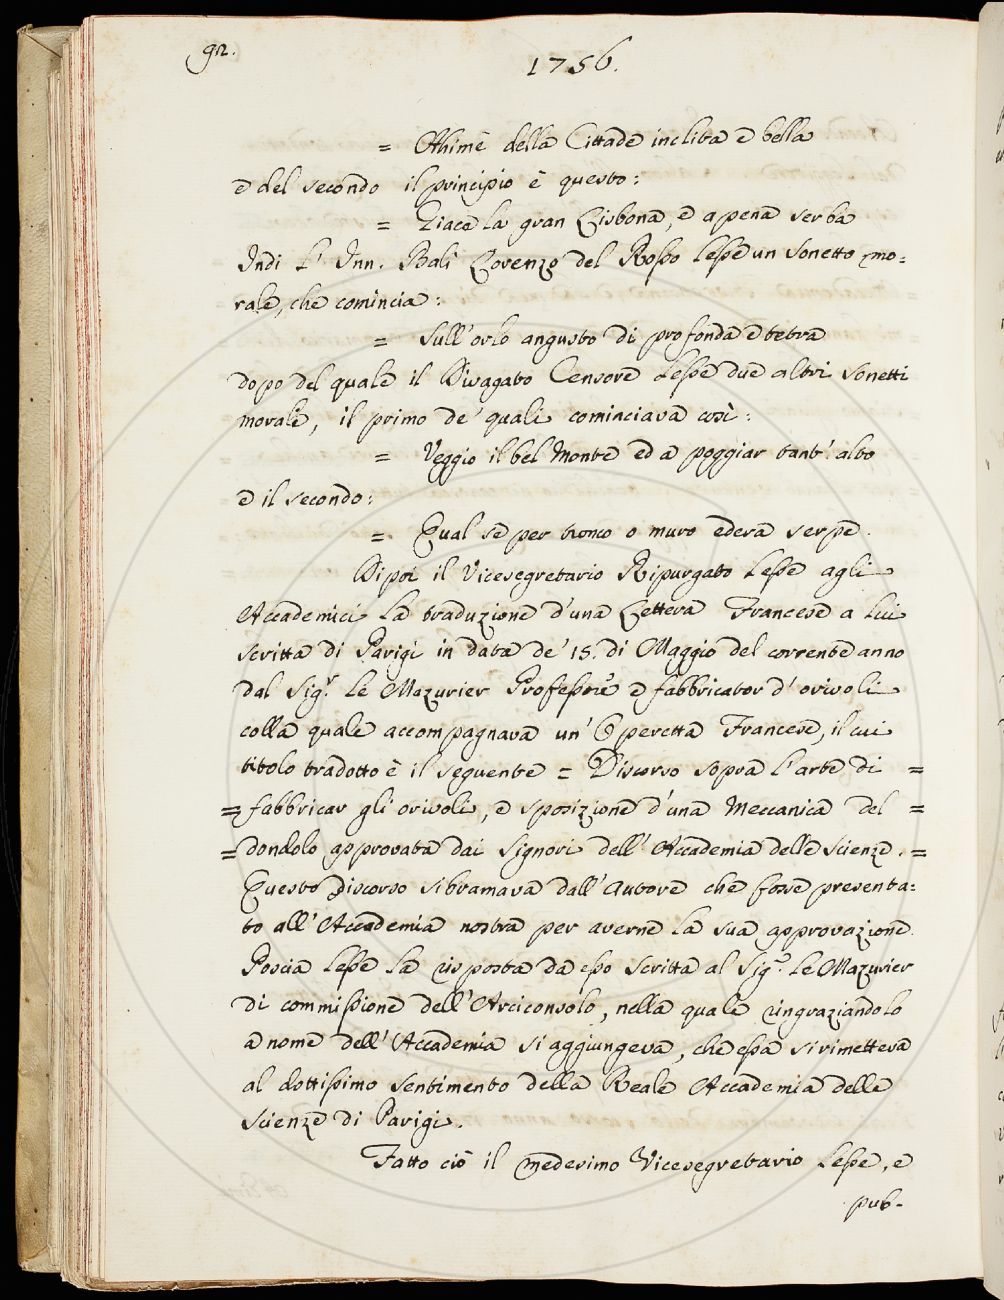 92.
1756.
= Ahimè della Cittade inclita e bella
e del secondo il principio è questo:
= Giace la gran Lisbona, e apena serba
Indi l' Inn. Balì Lorenzo del Rosso lesse un sonetto mo=
rale, che comincia:
= Sull'orlo angusto di profonda e tetra
dopo del quale il Divagato Censore lesse due altri sonetti
morali, il primo de' quali cominciava così:
= Veggio il bel Monte ed a poggiar tant' alto
e il secondo:
= Qual se per tronco o muro edera serpe.
Dipoi il Vicesegretario Ripurgato lesse agli
Accademici la traduzione d'una Lettera Francese a lui
scritta di Parigi in data de' 15. di Maggio del corrente anno
dal Sigr. Le Mazurier Professore e fabbricator d' orivoli
colla quale accompagnava un' Operetta Francese, il cui
titolo tradotto è il seguente = Discorso sopra l'arte di =
= fabbricar gli orivoli, e sposizione d'una Meccanica del =
= dondolo approvata dai Signori dell' Accademia delle Scienze. =
Questo Discorso si bramava dall' Autore che fosse presenta=
to all' Accademia nostra per averne la sua approvazione.
Poscia lesse la risposta da esso scritta al Sigr. Le Mazurier
di commissione dell' Arciconsolo, nella quale ringraziandolo
a nome dell' Accademia si aggiungeva, che essa si rimetteva
al dottissimo sentimento della Reale Accademia delle
Scienze di Parigi.
Fatto ciò il medesimo Vicesegretario lesse, e
pub-